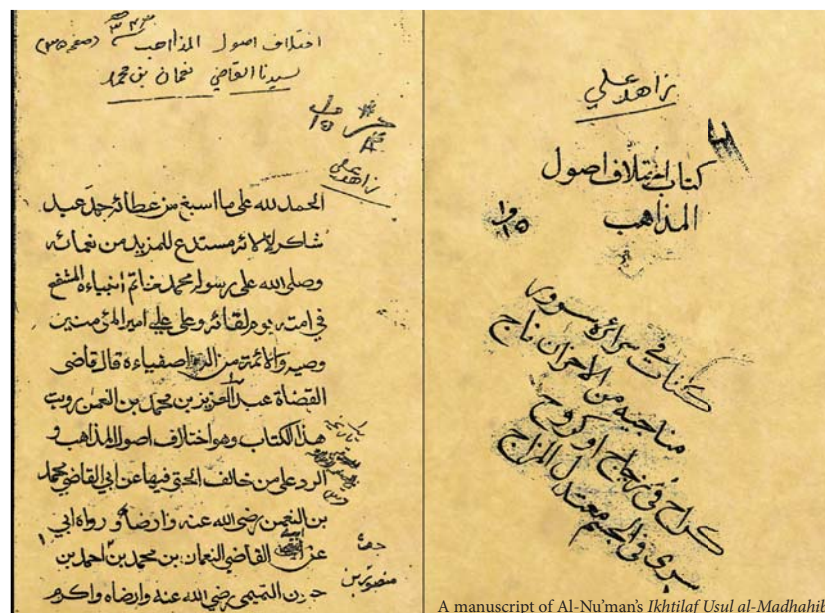 اختلاف اصول المذاهب (صفحه ٣٥)
لسيدنا القاضي نعمان بن محمد
زاهد علي
الحمد لله على ما اسبغ من عطائه حمد عبد
شاكر لآلائه مستدع للمزيد من نعمائه
وصلى الله على رسوله محمد خاتم انبياءه المشفع
في امته يوم لقائه وعلى علي امير المؤمنين
وصيه والائمة من اصفياءه قال قاضى
القضاة عبد العزيز بن محمد بن النعمن رويت
هذا الكتاب وهو اختلاف اصول المذاهب و
الرد على من خالف الحق فيها عن ابي القاضي محمد
بن النعمن رضى الله عنه وارضاه ورواه ابي
عن القاضي النعمان بن محمد بن احمد بن
التميمي رضى الله عنه وارضاه واكرم
منصور بن
زاهد علي
كتاب اختلاف اصول
المذاهب
١٥
كتاب في سرائره سرور
مناجيه من الاحزان ناج
كراح في زجاج او كروح
سرى في الجسم معتدل المزاج
A manuscript of Al-Nu'man's Ikhtilaf Usul al-Madhahib